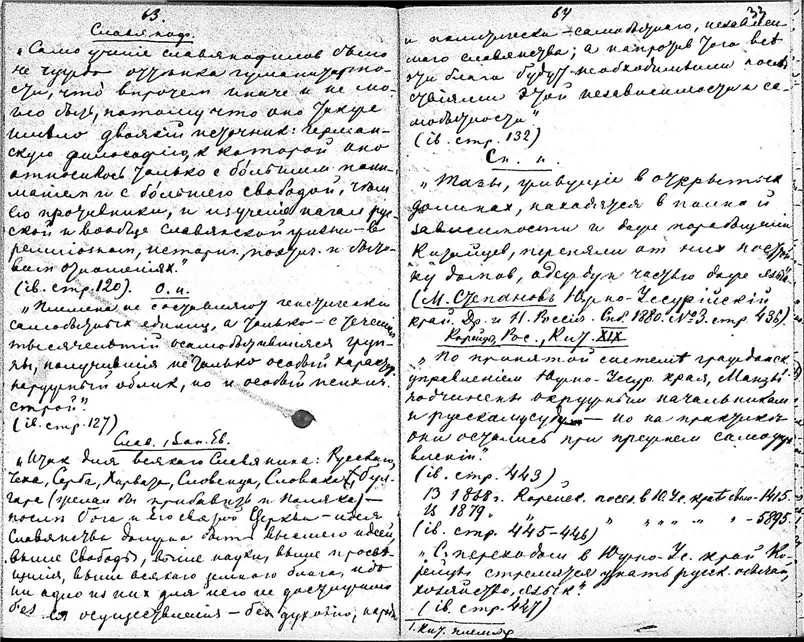 63.
Славяноф.
„Само учение славянофилов было
не чуждо оттенка гуманитарно-
сти, что впрочем иначе и не мо-
гло быть, потому что оно также
имело двоякий источник: герман-
скую философию, к которой оно
относилось только с бо́льшим пони-
манием и с бо́льшею свободой, чем
его противники, и изучение начал рус-
ской и вообще славянской жизни – в
религиозном, историч., поэтич. и быто-
вом отношениях."
(ib. стр. 120). О. н.
„Племена не составляют генетически
самобытных единиц, а только – с течением
тысячелетий обособившиеся груп-
пы, получившия не только особый характ.
наружный облик, но и особый психич.
строй."
(ib. стр. 127)
Слав., Зап. Ев.
„Итак для всякого Славянина: Русскаго,
Чеха, Серба, Хорвата, Словенца, Словака, Бул-
гара (желал бы прибавить и Поляка) –
после Бога и Его святой Церкви – идея
Славянства должна быть высшею идеей,
выше свободы, выше науки, выше просве-
щения, выше всякого земного блага, ибо
ни одно из них для него не достижимо
без ея осуществления – без духовно, народ-
64
33
и политически – самобытного, независи-
мого славянства; а напротив того все
эти блага будут необходимыми послед-
ствиями этой независимости и са-
мобытности"
(ib. стр. 132)
„Тазы, живущие в открытых
долинах, находятся в полной
зависимости и даже порабощении
Китайцев, переняли от них построй-
ку домов, одежду и частью даже язык".
(М. Степановъ Южно-Уссурiйскiй
край. Др. и Н. Россiя. 1880. №3. стр. 436).
Корейцы, Рос., Кит. XIX
„По принятой системе гражданск.
управлением Южно-Уссур. края, Манзы
подчинены окружным начальникам
и русскому суду – но на практике
они остались при прежнем самоупра-
влении."
(ib. стр. 443)
В 1868 г. Корейск. посел. в Ю. Ус. крае было – 1415.
В 1879 " " " " " – 5895
(ib. стр. 445–446)
„С переходом в Южно-Ус. край Ко-
рейцы стремятся узнать русск. обычаи,
хозяйство, язык"
(ib. стр. 447)
1. Кит. племя